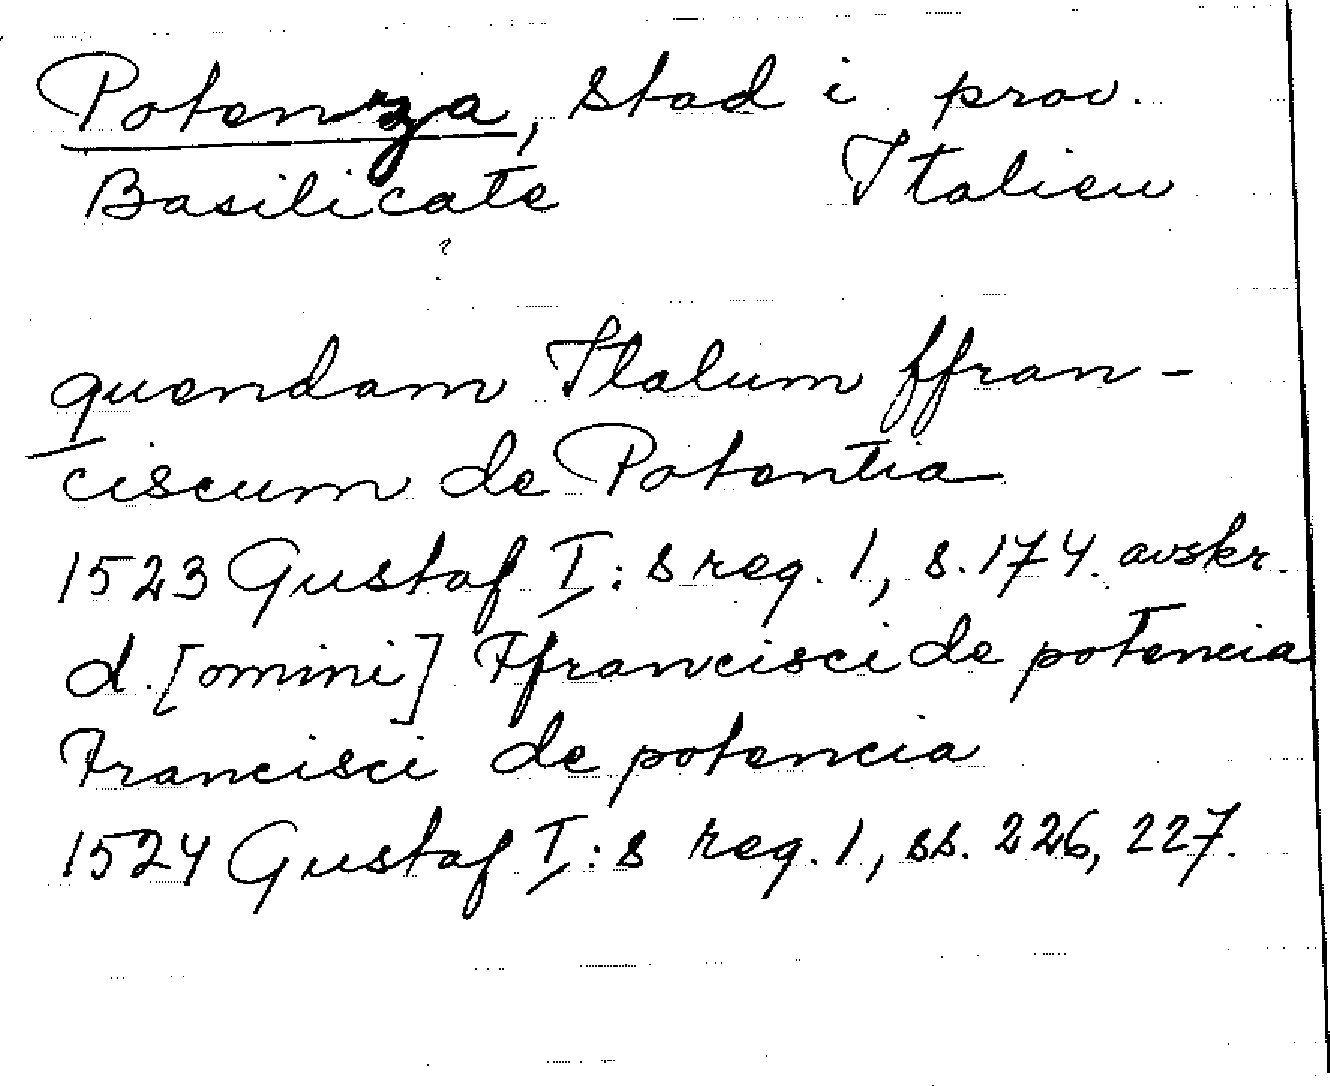 Potenza, stad i prov.
Basilicate Italien
quendam Italum ffran-
ciscum de Potentia
1523 Gustaf I:s reg. 1, s. 174. avskr.
d. [omini] Ffrancisci de potencia
Francisci de potencia
1524 Gustaf I:s reg. 1, ss. 226, 227.